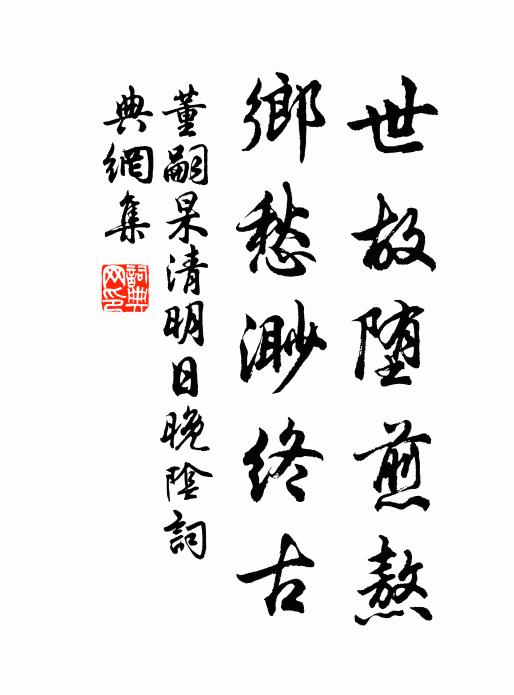 世故堕煎熬
鄉愁渺終古
董嗣杲清明日晚陰詞
典網集
詞典
网印